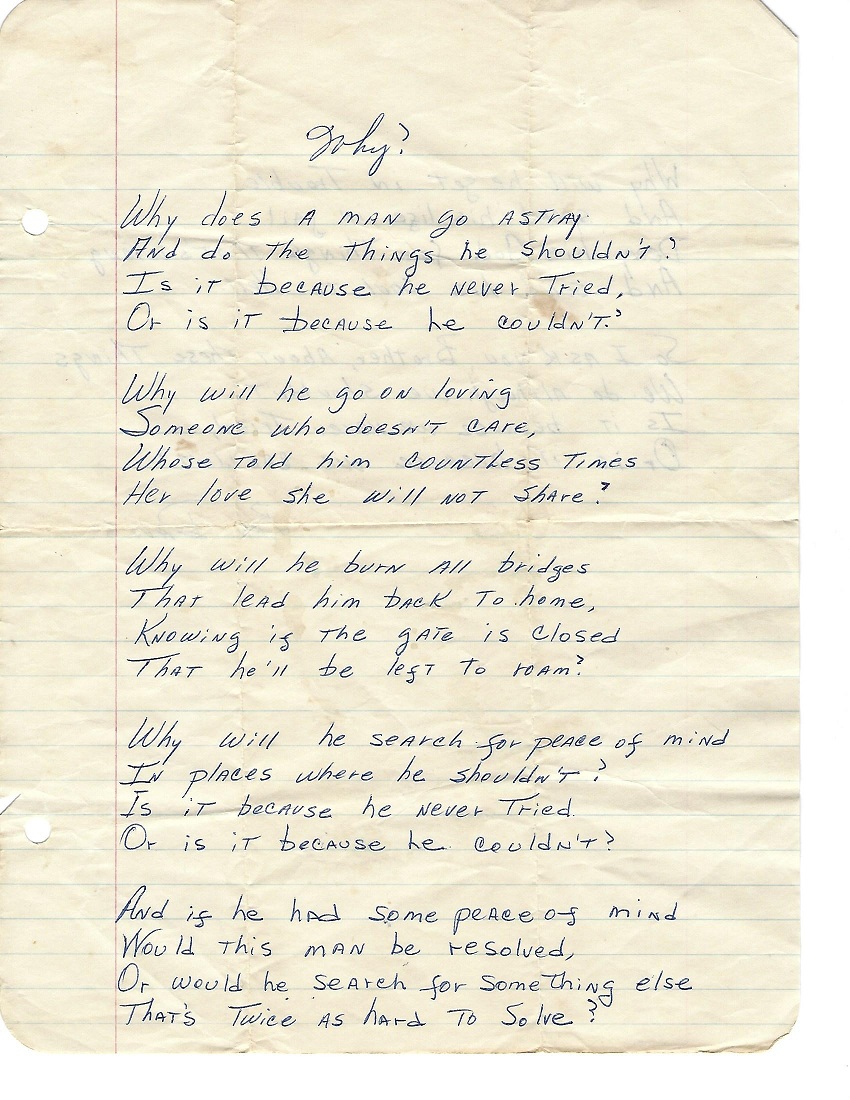 Why?
Why does a man go astray
And do the things he shouldn't?
Is it because he never tried,
Or is it because he couldn't?
Why will he go on loving
Someone who doesn't care,
Whose told him countless times
Her love she will not share?
Why will he burn all bridges
That lead him back to home,
Knowing if the gate is closed
That he'll be left to roam?
Why will he search for peace of mind
In places where he shouldn't?
Is it because he never tried
Or is it because he couldn't?
And if he had some peace of mind
Would this man be resolved,
Or would he search for something else
That's twice as hard to solve?